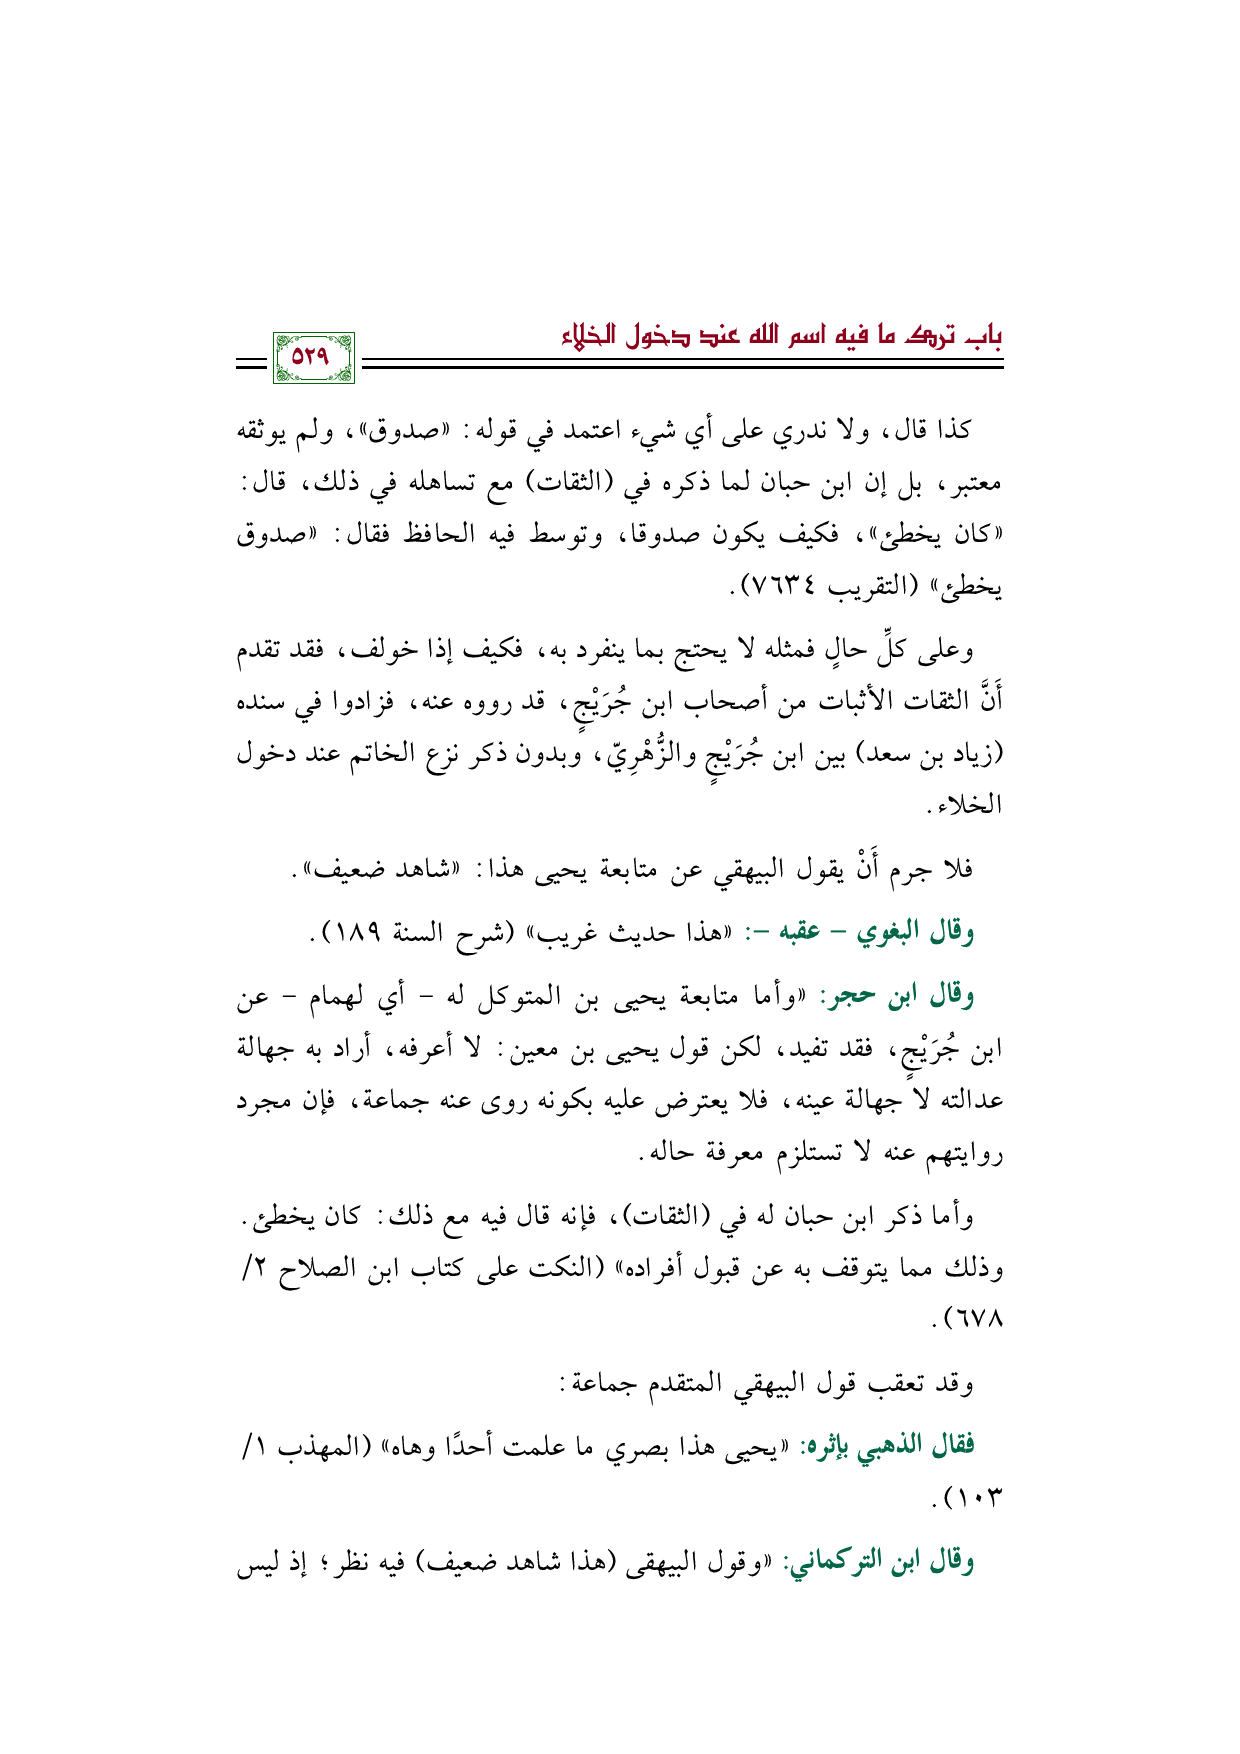 باب ترك ما فيه اسم الله عند دخول الخلاء
٥٢٩
كذا قال، ولا ندري على أي شيء اعتمد في قوله: «صدوق»، ولم يوثقه
معتبر، بل إن ابن حبان لما ذكره في (الثقات) مع تساهله في ذلك، قال:
«كان يخطئ»، فكيف يكون صدوقا، وتوسط فيه الحافظ فقال: «صدوق
يخطئ» (التقريب ٧٦٣٤).
وعلى كلِّ حالٍ فمثله لا يحتج بما ينفرد به، فكيف إذا خولف، فقد تقدم
أَنَّ الثقات الأثبات من أصحاب ابن جُرَيْجٍ، قد رووه عنه، فزادوا في سنده
(زياد بن سعد) بين ابن جُرَيْجٍ والزُّهْرِيّ، وبدون ذكر نزع الخاتم عند دخول
الخلاء.
فلا جرم أَنْ يقول البيهقي عن متابعة يحيى هذا: «شاهد ضعيف».
وقال البغوي – عقبه –: «هذا حديث غريب» (شرح السنة ١٨٩).
وقال ابن حجر: «وأما متابعة يحيى بن المتوكل له – أي لهمام – عن
ابن جُرَيْجٍ، فقد تفيد، لكن قول يحيى بن معين: لا أعرفه، أراد به جهالة
عدالته لا جهالة عينه، فلا يعترض عليه بكونه روى عنه جماعة، فإن مجرد
روايتهم عنه لا تستلزم معرفة حاله.
وأما ذكر ابن حبان له في (الثقات)، فإنه قال فيه مع ذلك: كان يخطئ.
وذلك مما يتوقف به عن قبول أفراده» (النكت على كتاب ابن الصلاح ٢/
٦٧٨).
وقد تعقب قول البيهقي المتقدم جماعة:
فقال الذهبي بإثره: «يحيى هذا بصري ما علمت أحدًا وهاه» (المهذب ١/
١٠٣).
وقال ابن التركماني: «وقول البيهقى (هذا شاهد ضعيف) فيه نظر؛ إذ ليس